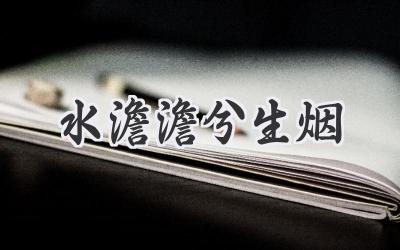 水澹澹兮生烟